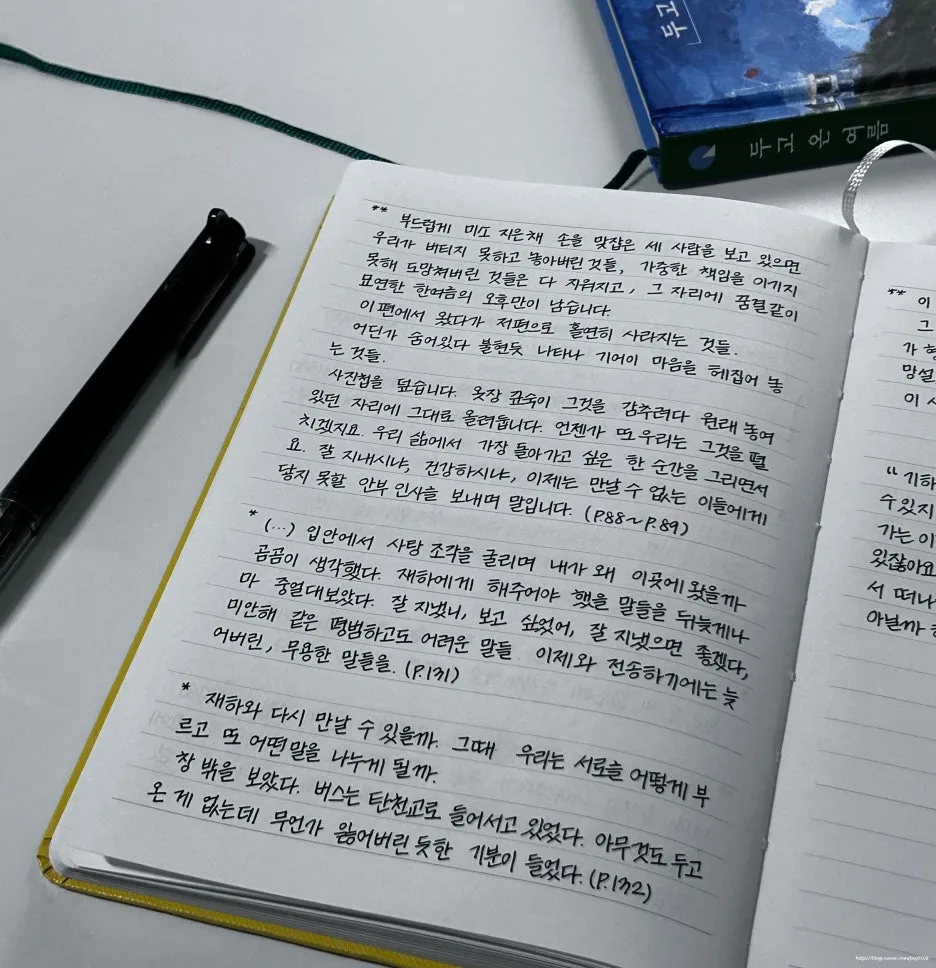 두고
두고 온 여름
** 부드럽게 미소 지은채 손을 맞잡은 세 사람을 보고 있으면
우리가 버티지 못하고 놓아버린 것들, 가중한 책임을 이기지
못해 도망쳐버린 것들은 다 지워지고, 그 자리에 꿈결같이
묘연한 한여름의 오후만이 남습니다.
이 편에서 왔다가 저편으로 홀연히 사라지는 것들.
어딘가 숨어있다 불현듯 나타나 기어이 마음을 헤집어 놓
는 것들.
사진첩을 덮습니다. 옷장 깊숙이 그것을 감추려다 원래 놓여
있던 자리에 그대로 올려둡니다. 언젠가 또 우리는 그것을 펼
치겠지요. 우리 삶에서 가장 돌아가고 싶은 한 순간을 그리면서
요. 잘 지내시냐, 건강하시냐, 이제는 만날 수 없는 이들에게
닿지 못할 안부 인사를 보내며 말입니다. (P.88~P.89)
* (...) 입안에서 사탕 조각을 굴리며 내가 왜 이곳에 왔을까
곰곰이 생각했다. 재하에게 해주어야 했을 말들을 뒤늦게나
마 중얼대보았다. 잘 지냈니, 보고 싶었어, 잘 지냈으면 좋겠다,
미안해 같은 평범하고도 어려운 말들. 이제와 전송하기에는 늦
어버린, 무용한 말들을. (P.131)
* 재하와 다시 만날 수 있을까. 그때 우리는 서로를 어떻게 부
르고 또 어떤 말을 나누게 될까.
창 밖을 보았다. 버스는 탄천교로 들어서고 있었다. 아무것도 두고
온 게 없는데 무언가 잃어버린 듯한 기분이 들었다. (P.132)
** 이
그
가 형
망설
이 시
“ 기하
수있지
가는 이
있잖아요
서 떠나
아닐까